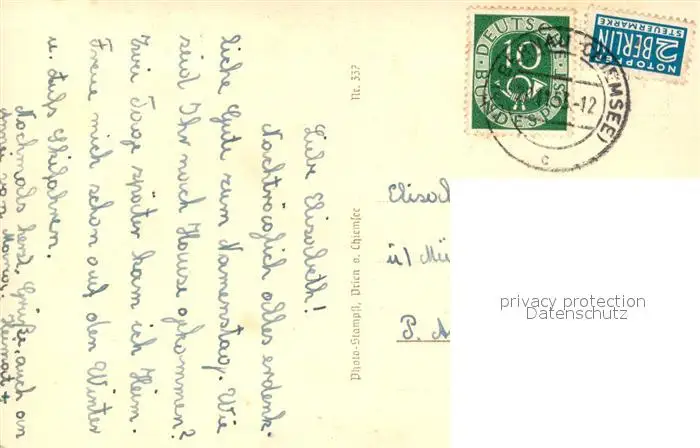 Liebe Elisabeth!
Nachträglich alles erdenk-
liche Gute zum Namenstag. Wie
seid Ihr nach Hause gekommen?
Zwei Tage später kam ich Heim.
Freue mich schon auf den Winter
u. aufs Skifahren.
Nochmals herzl. Grüße, auch an
von
Nr. 337
Photo-Stampfl, Prien a. Chiemsee
DEUTSCHE
BUNDESPOST
10
NOTOPFER
2 BERLIN
STEUERMARKE
CHIEMSEE)
-12
c
P.
privacy protection
Datenschutz